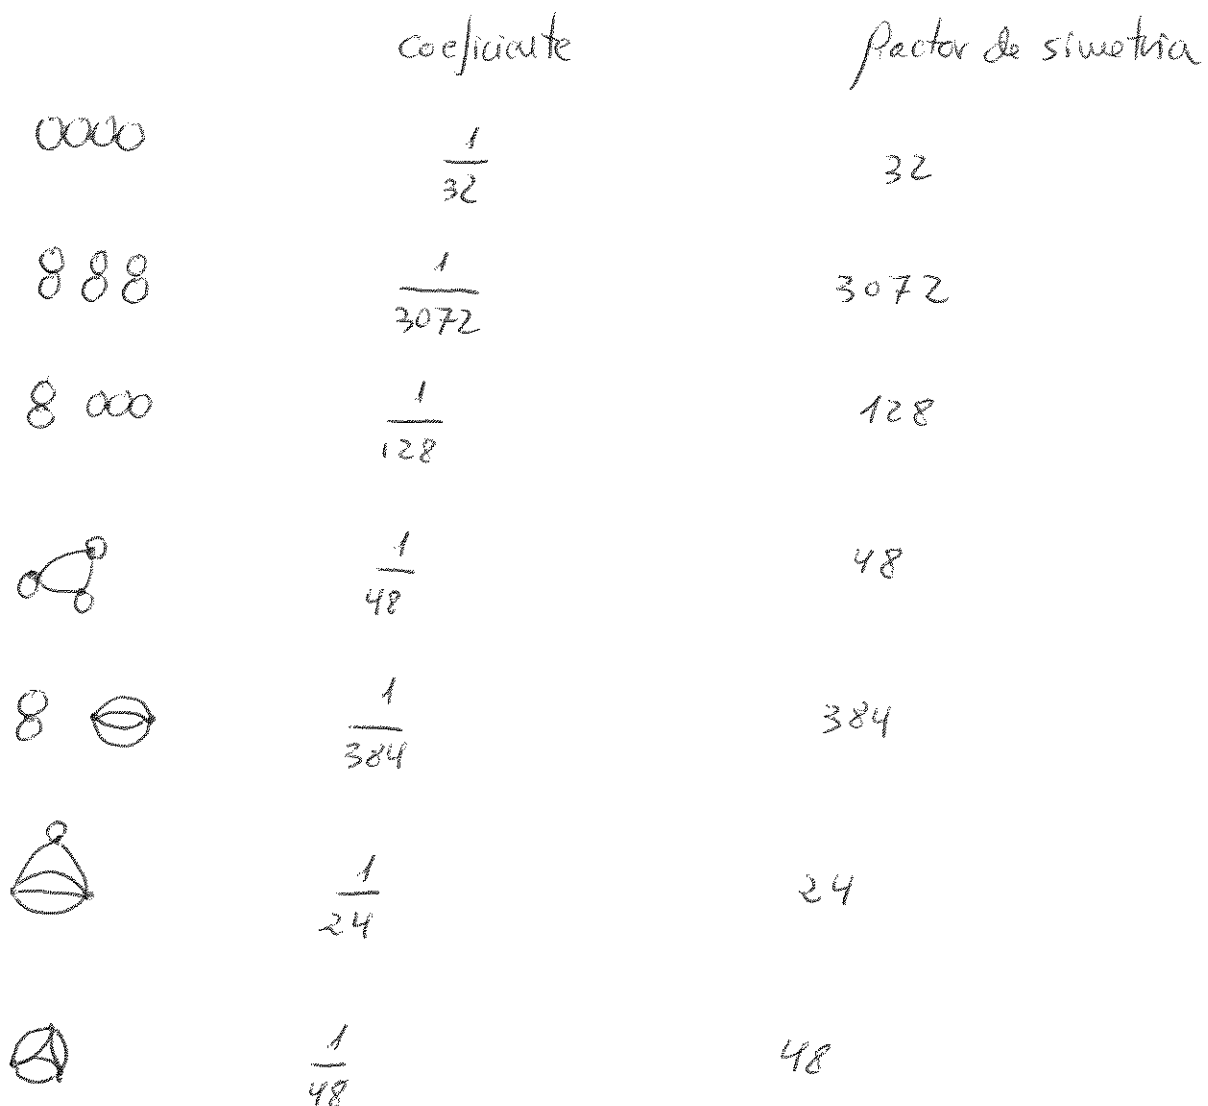 coeficiente factor de simetria
1/32 32
1/3072 3072
1/128 128
1/48 48
1/384 384
1/24 24
1/48 48